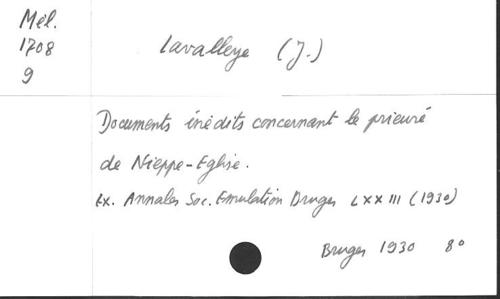 Mél.
1708
9
Lavalleye (J.)
Documents inédits concernant le prieuré
de Nieppe-Eglise.
Ex. Annales Soc. Emulation Bruges LXXIII (1930)
Bruges 1930 8°